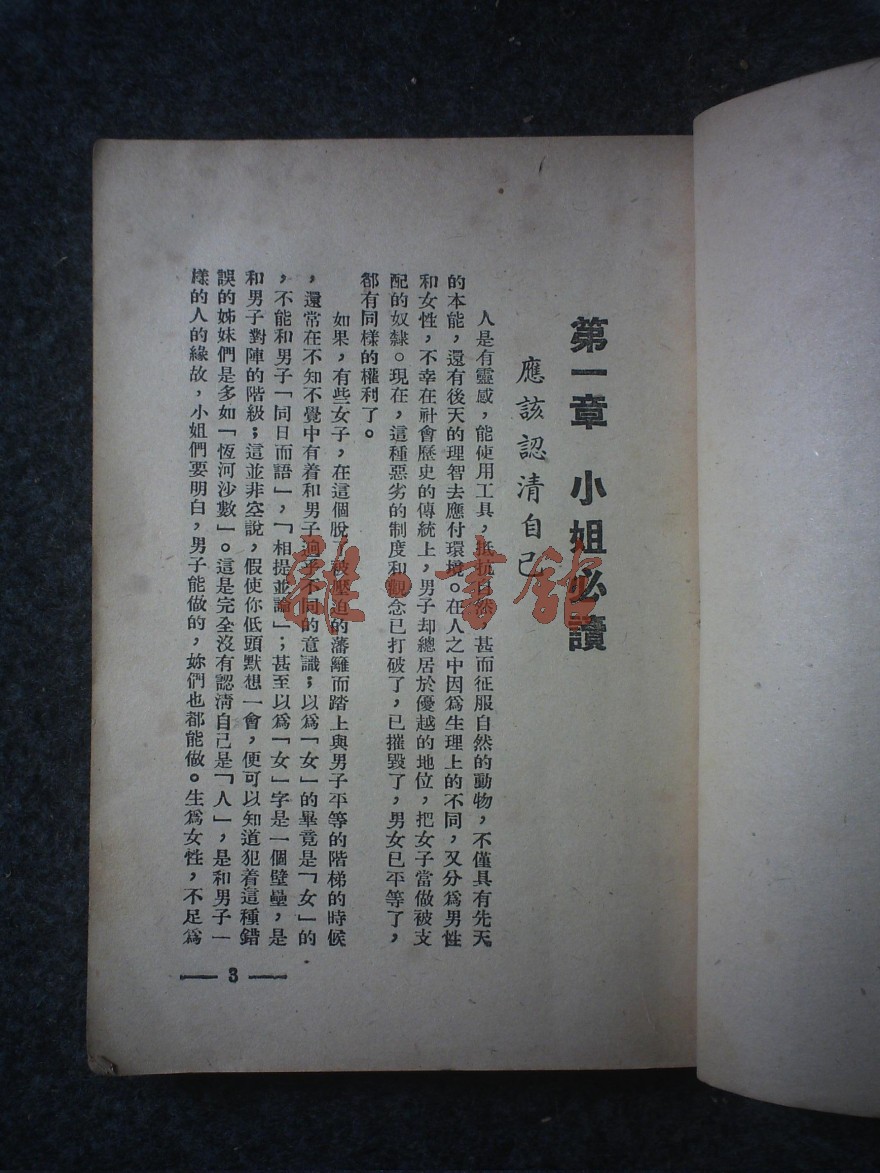 第一章 小姐必讀
應該認清自己
人是有靈感，能使用工具，抵抗自然，甚而征服自然的動物，不僅具有先天
的本能，還有後天的理智去應付環境。在人之中因爲生理上的不同，又分爲男性
和女性，不幸在社會歷史的傳統上，男子却總居於優越的地位，把女子當做被支
配的奴隸。現在，這種惡劣的制度和觀念已打破了，已摧毀了，男女已平等了，
都有同樣的權利了。
如果，有些女子，在這個脫了被壓迫的藩籬而踏上與男子平等的階梯的時候
，還常在不知不覺中有着和男子迥乎不同的意識；以爲「女」的畢竟是「女」的
，不能和男子「同日而語」，「相提並論」；甚至以爲「女」字是一個壁壘，是
和男子對陣的階級；這並非空說，假使你低頭默想一會，便可以知道犯着這種錯
誤的姊妹們是多如「恆河沙數」。這是完全沒有認清自己是「人」，是和男子一
樣的人的緣故，小姐們要明白，男子能做的，妳們也都能做。生爲女性，不足爲
3
雜·書舘